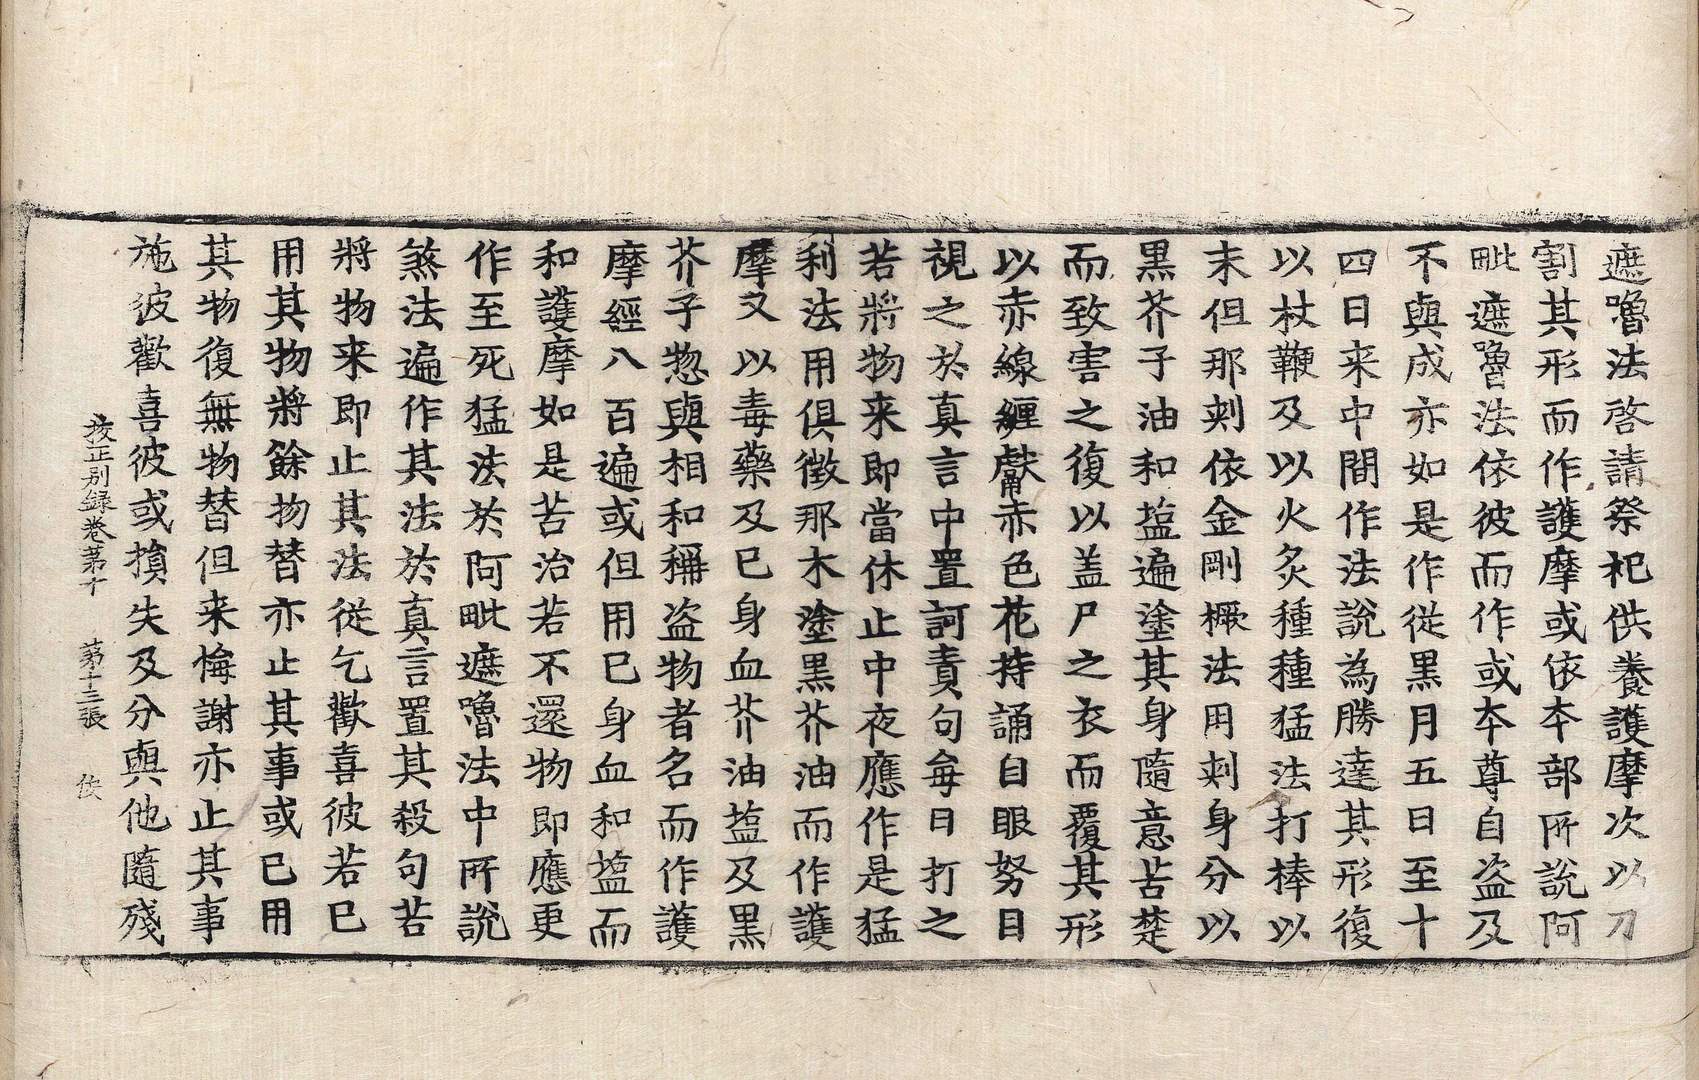 遮嚕法啓請祭祀供養護摩次以刀
割其形而作護摩或依夲部所說阿
毗遮嚕法依彼而作或夲尊自盗及
不與成亦如是作從黒月五日至十
四日来中間作法說為勝達其形復
以杖鞭及以火炙種種猛法打棒以
末但那刾依金剛橛法用刾身分以
黒芥子油和塩遍塗其身隨意苦楚
而致害之復以盖尸之衣而覆其形
以赤線纏獻赤色花持誦自眼努目
視之於真言中置訶責句每日打之
若將物来即當休止中夜應作是猛
利法用俱徵那木塗黒芥油而作護
摩又以毒藥及已身血芥油塩及黒
芥子惣與相和稱盗物者名而作護
摩經八百遍或但用已身血和塩而
和護摩如是苦治若不還物即應更
作至死猛法於阿毗遮嚕法中所說
煞法遍作其法於真言置其殺句若
將物来即止其法從乞歡喜彼若已
用其物將餘物替亦止其事或已用
其物復無物替但来悔謝亦止其事
施彼歡喜彼或損失及分與他隨殘
挍正別録卷第十　第十三張　佚